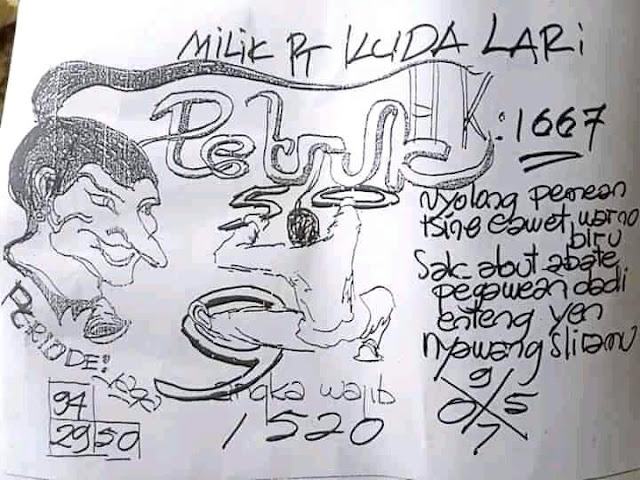 MILIK PT KUDA LARI
Petruk
HK: 1667
Nyolong pemean
isine cawet warno
biru
Sak abut abate
pegawean dadi
enteng yen
nyawang sliramu
9
0 5
7
5 0
9
PERIODE:
94
29 50
angka wajib
1520